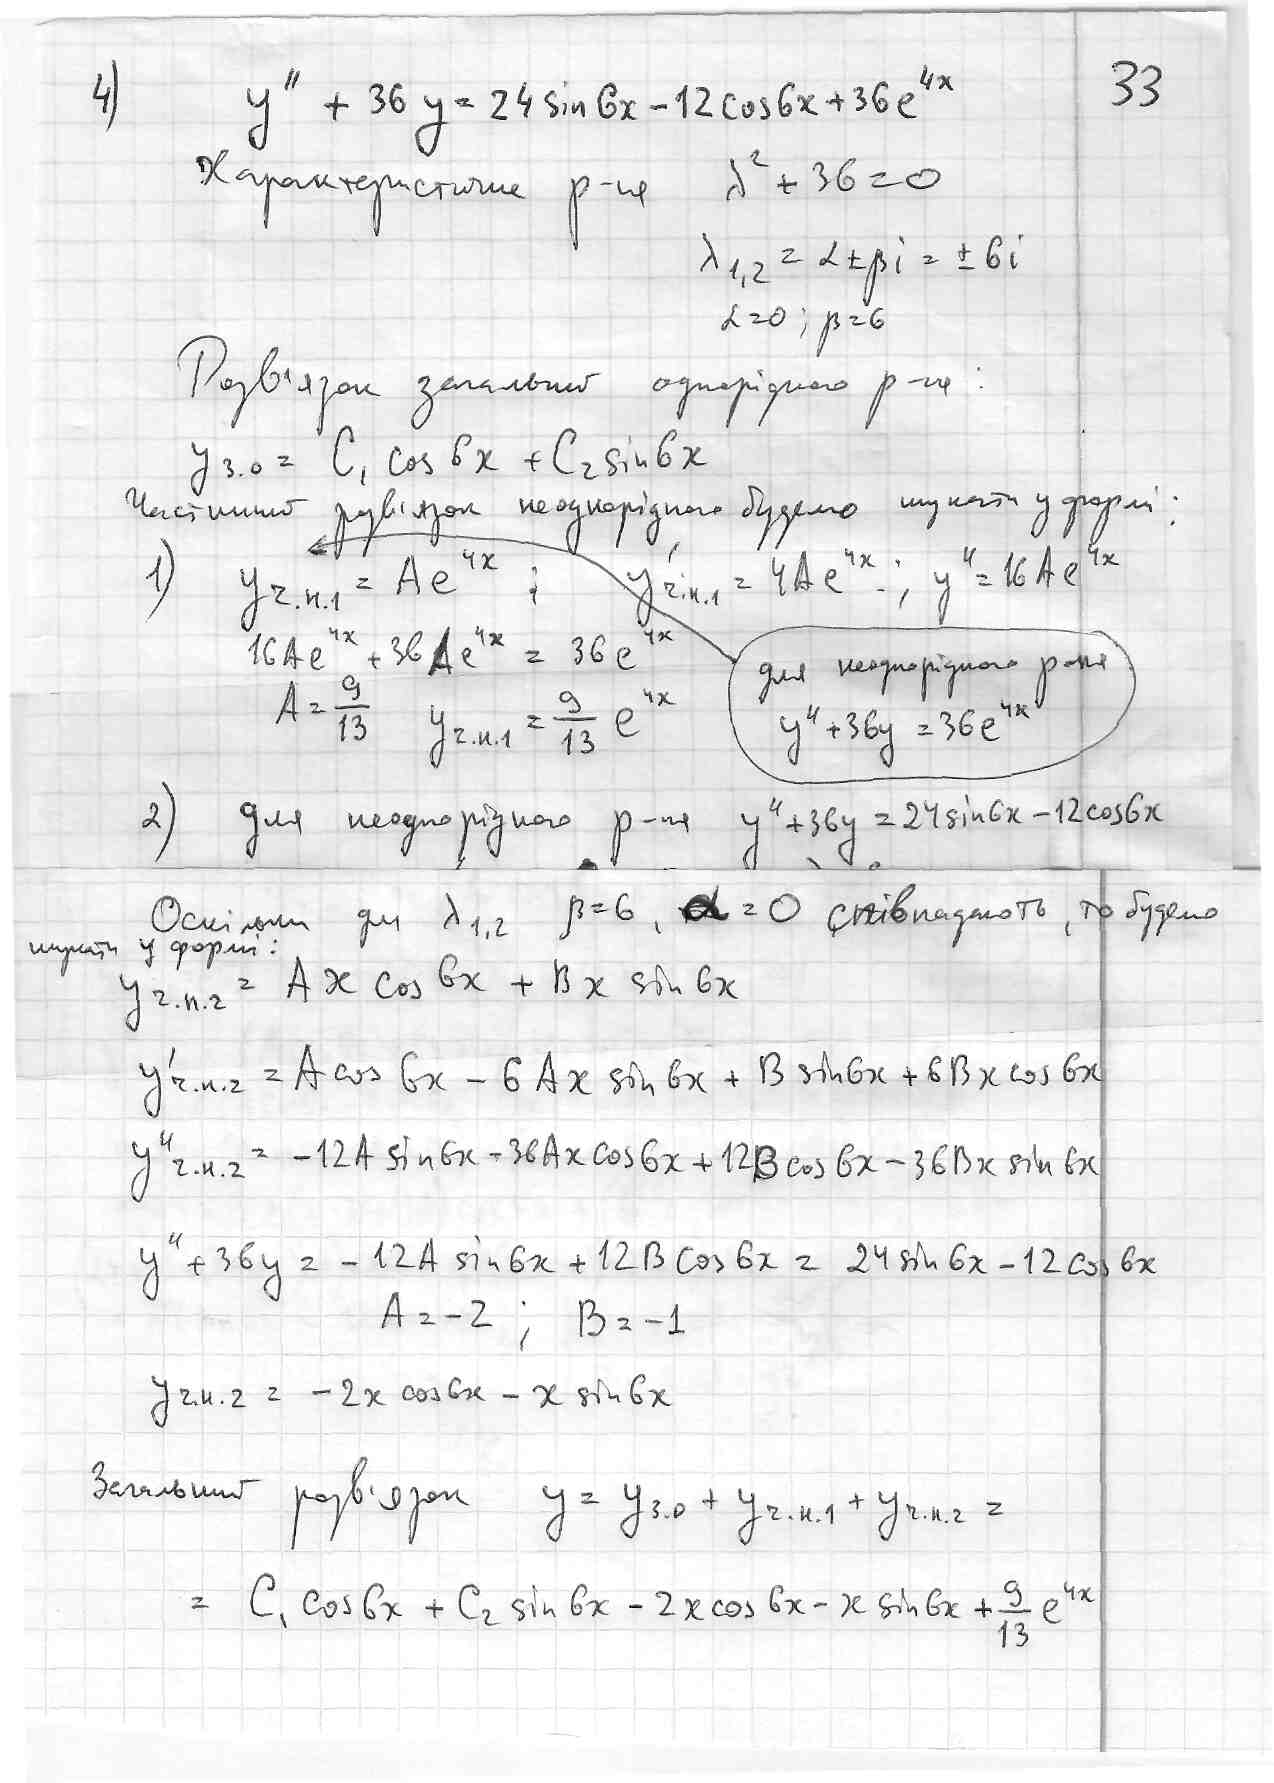 4) y'' + 36y = 24 sin6x - 12cos6x + 36e^{4x} 33
Характеристичне р-ня λ² + 36 = 0
λ_{1,2} = α ± βi = ± 6i
α=0 ; β=6
Розв'язок загальний однорідного р-ня:
y_{з.о} = C₁ cos 6x + C₂ sin6x
Частинний розв'язок неоднорідного будемо шукати у формі:
1) y_{ч.н.1} = Ae^{4x} ; y'_{ч.н.1} = 4Ae^{4x} ; y'' = 16Ae^{4x}
16Ae^{4x} + 36Ae^{4x} = 36e^{4x}
A = 9/13 y_{ч.н.1} = 9/13 e^{4x}
для неоднорідного р-ня
y'' + 36y = 36e^{4x}
2) для неоднорідного р-ня y'' + 36y = 24sin6x - 12cos6x
Оскільки для λ_{1,2} β=6, α=0 співпадають, то будемо
шукати у формі:
y_{ч.н.2} = Ax cos6x + Bx sin6x
y'_{ч.н.2} = A cos 6x - 6Ax sin6x + B sin6x + 6Bx cos6x
y''_{ч.н.2} = -12A sin6x - 36Ax cos6x + 12B cos6x - 36Bx sin6x
y'' + 36y = -12A sin6x + 12B cos6x = 24sin6x - 12cos6x
A = -2 ; B = -1
y_{ч.н.2} = -2x cos6x - x sin6x
Загальний розв'язок y = y_{з.о} + y_{ч.н.1} + y_{ч.н.2} =
= C₁ cos6x + C₂ sin6x - 2x cos6x - x sin6x + 9/13 e^{4x}